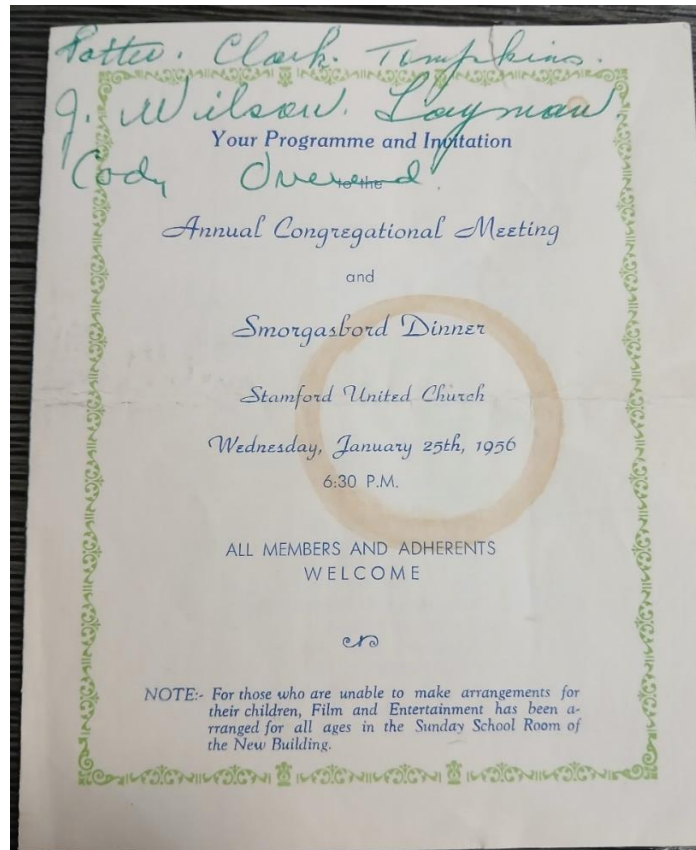 Potter. Clark. Tompkins.
J. Wilson. Layman.
Your Programme and Invitation
Cody Overend.
to the
Annual Congregational Meeting
and
Smorgasbord Dinner
Stamford United Church
Wednesday, January 25th, 1956
6:30 P.M.
ALL MEMBERS AND ADHERENTS
WELCOME
NOTE:- For those who are unable to make arrangements for
their children, Film and Entertainment has been a-
rranged for all ages in the Sunday School Room of
the New Building.